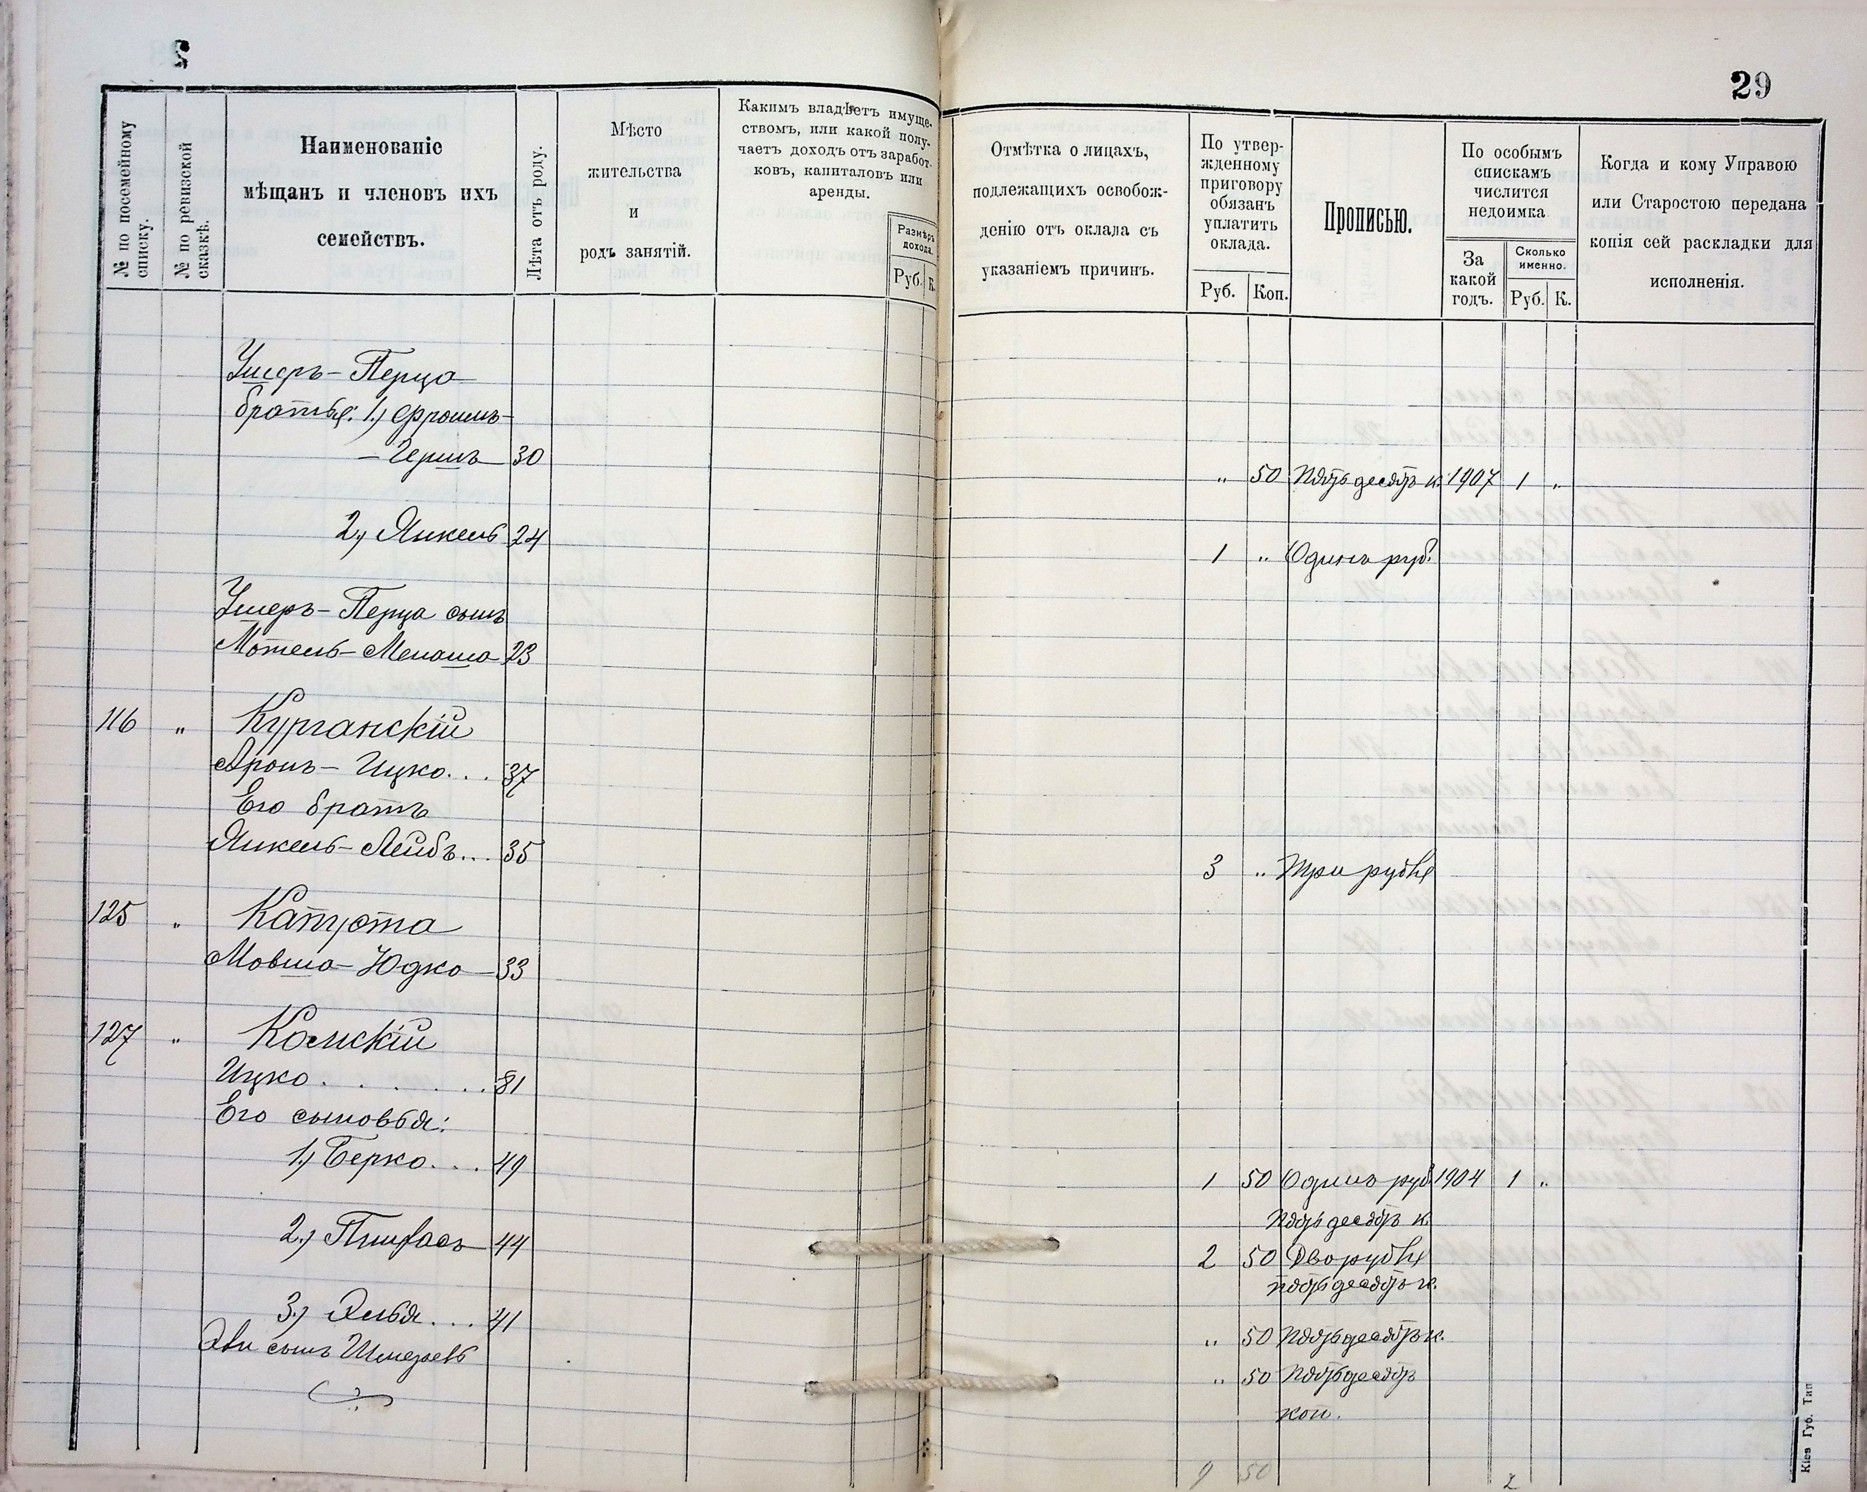 29
№ по посемейному
списку.
№ по ревизской
сказкѣ.
Наименованіе
мѣщанъ и членовъ ихъ
семействъ.
Лѣта отъ роду.
Мѣсто
жительства
и
родъ занятій.
Какимъ владѣетъ имуще-
ствомъ, или какой полу-
чаетъ доходъ отъ заработ-
ковъ, капиталовъ или
аренды.
Размѣръ
дохода.
Руб. К.
Отмѣтка о лицахъ,
подлежащихъ освобож-
денію отъ оклада съ
указаніемъ причинъ.
По утвер-
жденному
приговору
обязанъ
уплатить
оклада.
Руб. Коп.
Прописью.
По особымъ
спискамъ
числится
недоимка
За
какой
годъ.
Сколько
именно.
Руб. К.
Когда и кому Управою
или Старостою передана
копія сей раскладки для
исполненія.
Ушеръ-Перца
братья: 1.) Фроимъ-
-Гершъ 30
„ 50 Пятьдесятъ к. 1907 1 „
2.) Янкель 24
1 „ Одинъ руб.
Ушеръ-Перца сынъ
Мотель-Менаша 23
116 „ Курганскій
Аронъ-Ицко... 37
Его братъ
Янкель-Лейбъ... 35
3 „ Три рубля
125 „ Капуста
Мовша-Юдко 33
127 „ Комскій
Ицко . . . . . . 81
Его сыновья:
1.) Берко.... 49
1 50 Одинъ руб. 1904 1 „
Пятьдесятъ к.
2.) Пинхасъ 44
2 50 Два рубля
пятьдесятъ к.
3.) Эльья.... 41
„ 50 Пятьдесятъ к.
сынъ
„ 50 Пятьдесятъ
коп.
9 50 2
Кіев Губ. Тип